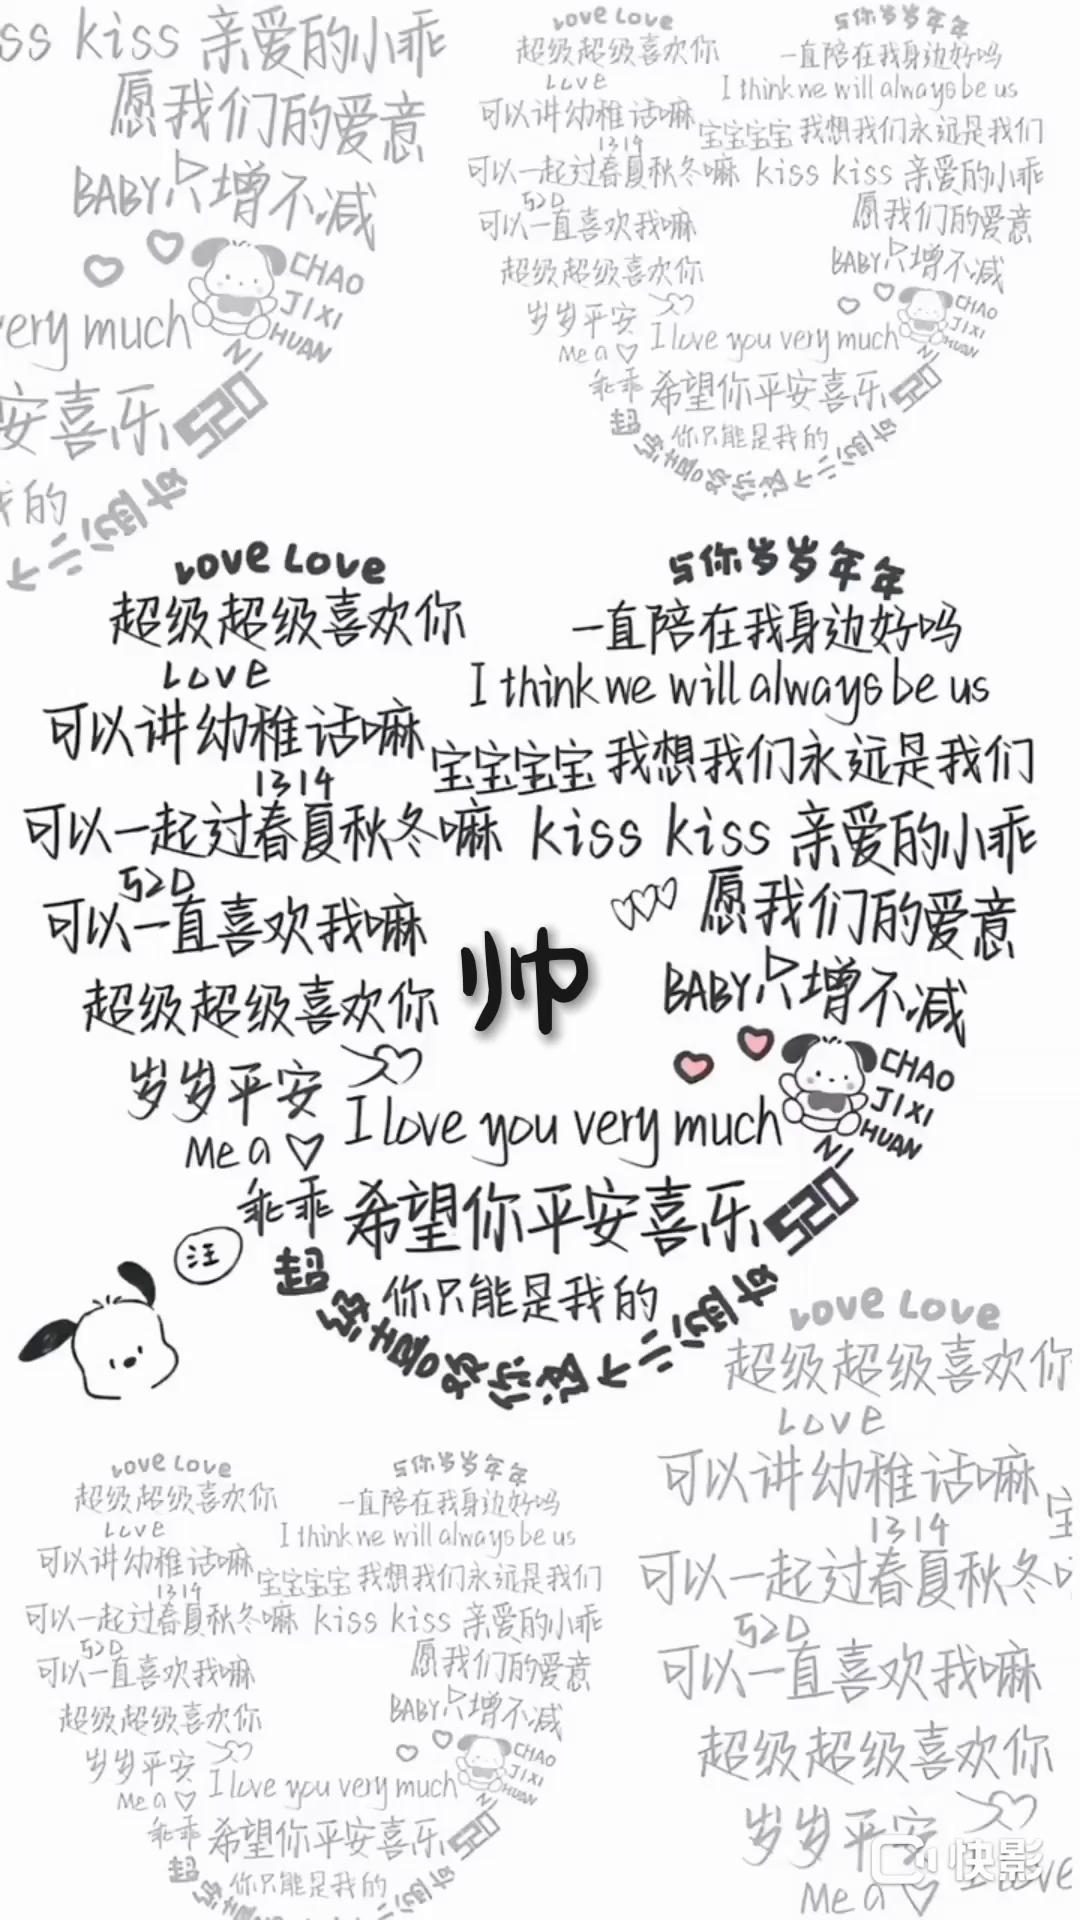 ss kiss 亲爱的小乖
愿我们的爱意
BABY只增不减
CHAO
JIXI
HUAN
NI
very much
安喜乐 520
我的
Love Love
与你岁岁年年
超级超级喜欢你
一直陪在我身边好吗
Love
I think we will always be us
可以讲幼稚话嘛
宝宝宝宝 我想我们永远是我们
1314
可以一起过春夏秋冬嘛 kiss kiss 亲爱的小乖
520
可以一直喜欢我嘛
愿我们的爱意
超级超级喜欢你
BABY只增不减
岁岁平安
CHAO
JIXI
HUAN
NI
Me a ♡
I love you very much
乖乖 希望你平安喜乐 520
你只能是我的
Love Love
与你岁岁年年
超级超级喜欢你
一直陪在我身边好吗
Love
I think we will always be us
可以讲幼稚话嘛
宝宝宝宝 我想我们永远是我们
1314
可以一起过春夏秋冬嘛 kiss kiss 亲爱的小乖
520
可以一直喜欢我嘛
愿我们的爱意
帅
超级超级喜欢你
BABY只增不减
岁岁平安
CHAO
JIXI
HUAN
NI
Me a ♡
I love you very much
乖乖 希望你平安喜乐 520
汪
你只能是我的
超级喜欢你这个小
Love Love
超级超级喜欢你
Love
可以讲幼稚话嘛
1314
可以一起过春夏秋冬
520
可以一直喜欢我嘛
超级超级喜欢你
岁岁平安
Me a ♡
I love
快影
Love Love
与你岁岁年年
超级超级喜欢你
一直陪在我身边好吗
Love
I think we will always be us
可以讲幼稚话嘛
宝宝宝宝 我想我们永远是我们
1314
可以一起过春夏秋冬嘛 kiss kiss 亲爱的小乖
520
可以一直喜欢我嘛
愿我们的爱意
超级超级喜欢你
BABY只增不减
岁岁平安
CHAO
JIXI
HUAN
NI
Me a ♡
I love you very much
乖乖 希望你平安喜乐 520
你只能是我的